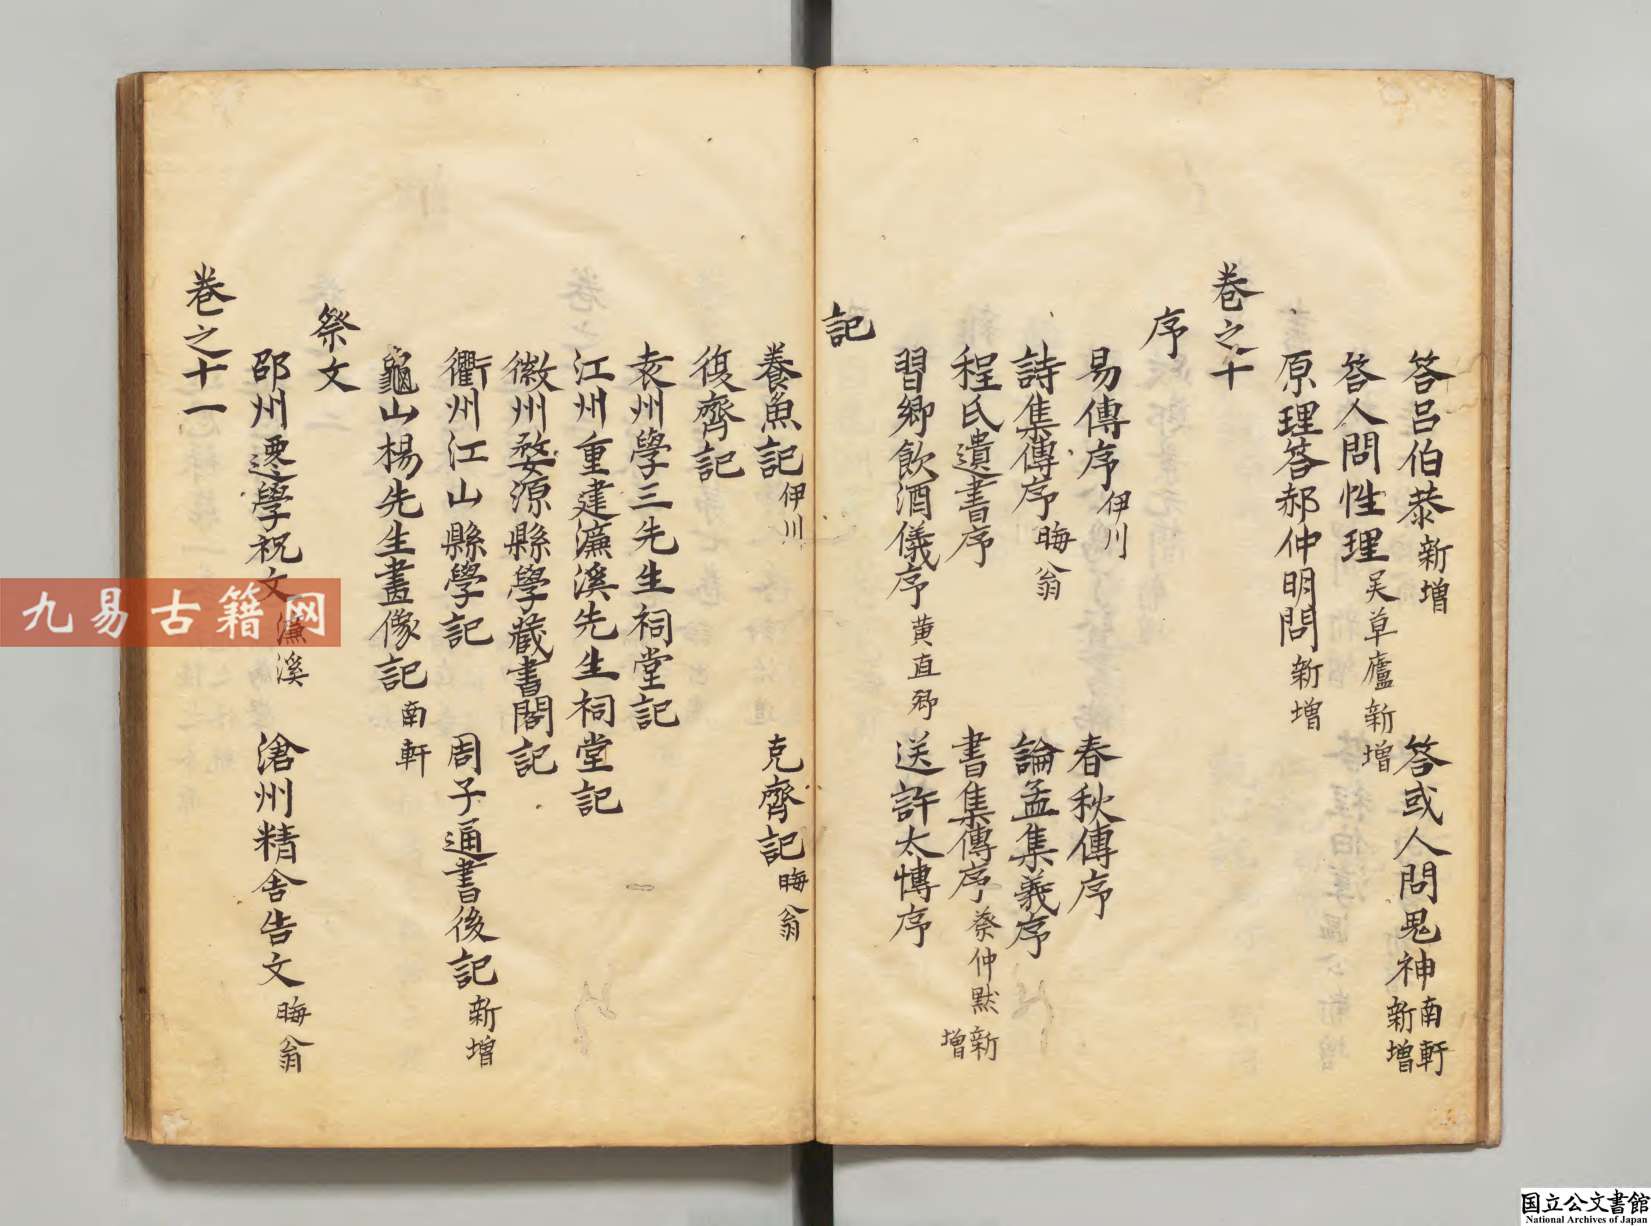 答呂伯恭新增 答或人問鬼神南軒新增
答人問性理吴草廬新增
原理答郝仲明問新增
卷之十
序
易傳序伊川 春秋傳序
詩集傳序晦翁 論孟集義序
程氏遺書序 書集傳序蔡仲默新增
習鄉飲酒儀序黄直卿 送許太愽序
記
養魚記伊川 克齋記晦翁
復齋記
袁州學三先生祠堂記
江州重建濂溪先生祠堂記
徽州婺源縣學藏書閣記
衢州江山縣學記 周子通書後記新增
龜山楊先生畫像記南軒
祭文
邵州遷學祝文濂溪 滄州精舍告文晦翁
卷之十一
九易古籍网
国立公文書館
National Archives of Japan